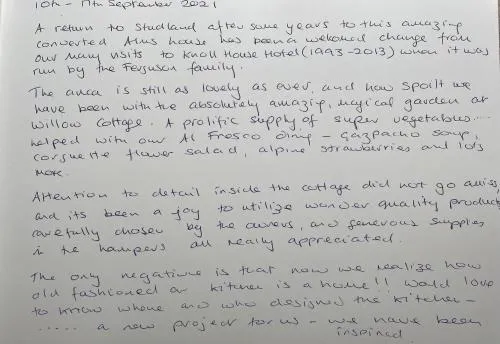 10th - 17th September 2021
A return to Studland after some years to this amazing
converted Alms house has been a welcomed change from
our many visits to Knoll House Hotel (1993-2013) when it was
run by the Ferguson family.
The area is still as lovely as ever, and how spoilt we
have been with the absolutely amazing, magical garden at
Willow Cottage. A prolific supply of super vegetables....
helped with our Al Fresco dining - gazpacho soup,
corguette flower salad, alpine strawberries and lots
more.
Attention to detail inside the cottage did not go amiss,
and its been a joy to utilize wonder quality products
carefully chosen by the owners, and generous supplies
in the hampers all really appreciated.
The only negative is that now we realize how
old fashioned our kitchen is a home!! Would love
to know where and who designed the kitchen -
..... a new project for us - we have been
inspired